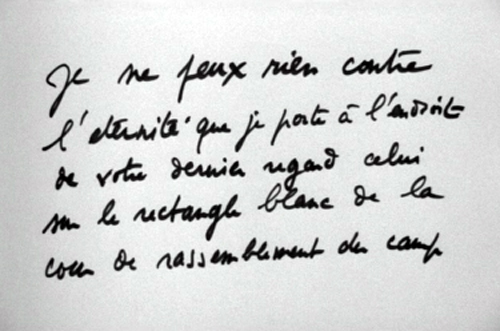 Je ne peux rien contre
l'éternité que je porte à l'endroit
de votre dernier regard celui
sur le rectangle blanc de la
cour de rassemblement du camp